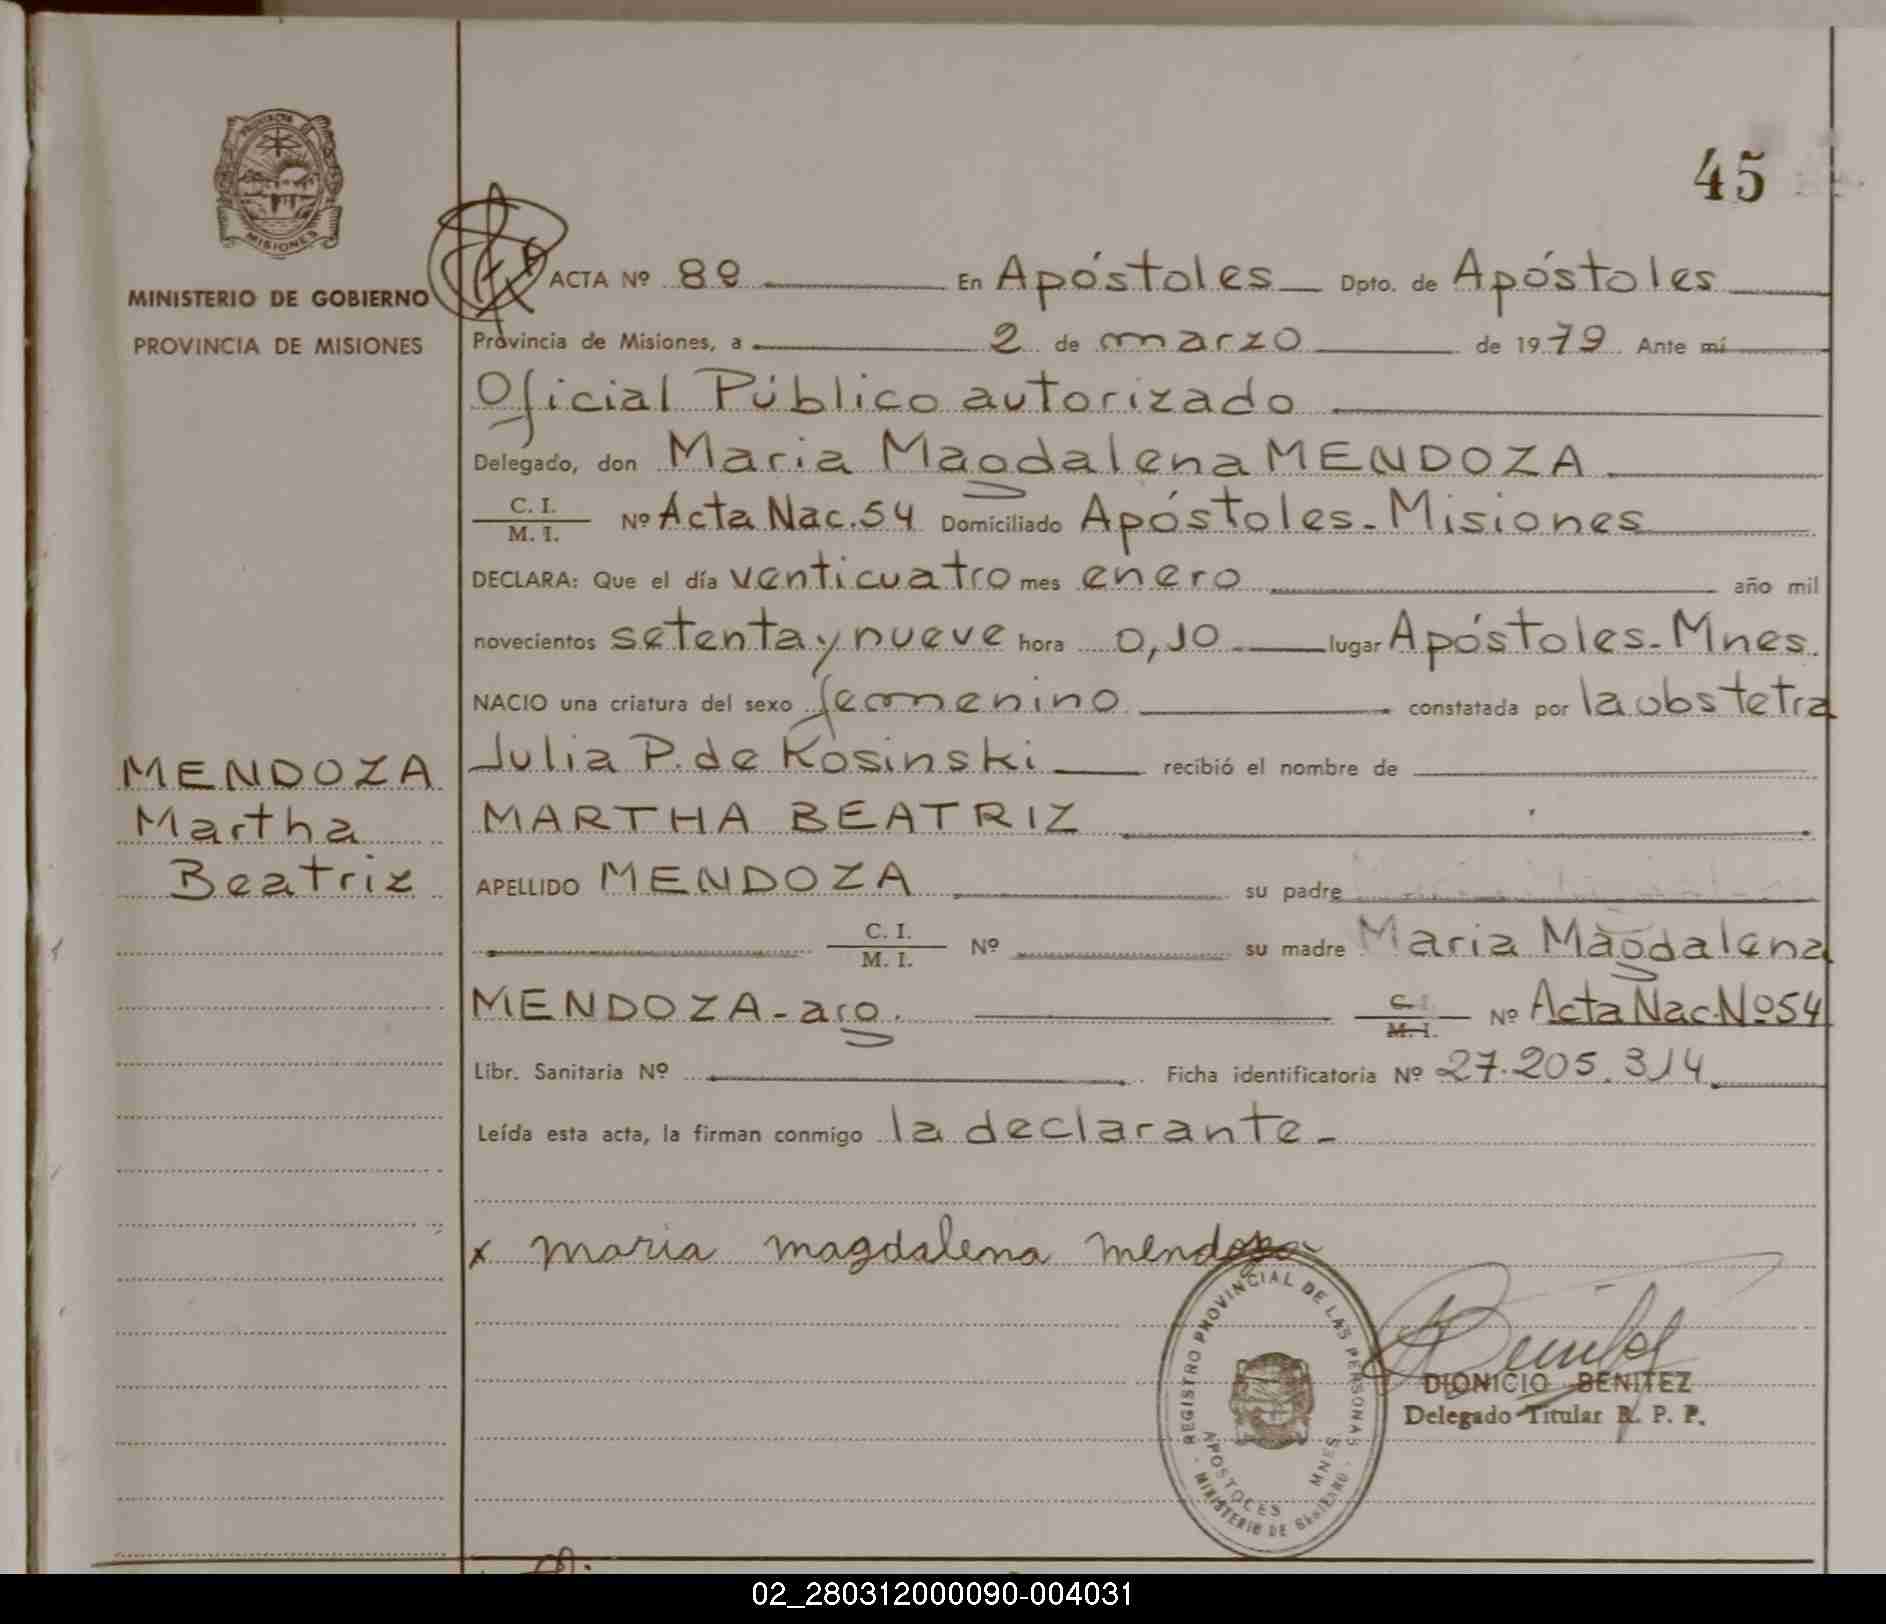 PROVINCIA DE
MISIONES
MINISTERIO DE GOBIERNO
PROVINCIA DE MISIONES
45
ACTA Nº 89 En Apóstoles Dpto. de Apóstoles
Provincia de Misiones, a 2 de marzo de 1979 Ante mí
Oficial Público autorizado
Delegado, don Maria Magdalena MENDOZA
C. I.
M. I.
Nº Acta Nac. 54 Domiciliado Apóstoles - Misiones
DECLARA: Que el día venticuatro mes enero año mil
novecientos setenta y nueve hora 0,10 lugar Apóstoles - Mnes.
NACIO una criatura del sexo femenino constatada por la obstetra
Julia P. de Kosinski recibió el nombre de
MARTHA BEATRIZ
APELLIDO MENDOZA su padre
C. I.
M. I.
Nº su madre Maria Magdalena
MENDOZA - arg. C. I.
M. I.
Nº Acta Nac. Nº 54
Libr. Sanitaria Nº Ficha identificatoria Nº 27.205.314
Leída esta acta, la firman conmigo la declarante -
MENDOZA
Martha
Beatriz
x maria magdalena mendoza
REGISTRO PROVINCIAL DE LAS PERSONAS
APOSTOLES MNES
MINISTERIO DE GOBIERNO
DIONICIO BENITEZ
Delegado Titular R. P. P.
02_280312000090-004031